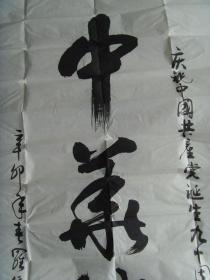 庆祝中國共產党诞生九十周
中華
辛卯年春